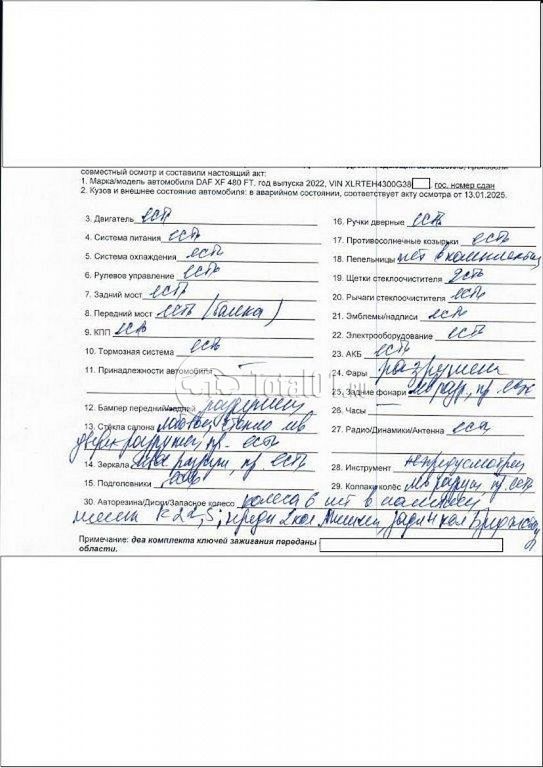 совместный осмотр и составили настоящий акт:
1. Марка/модель автомобиля DAF XF 480 FT, год выпуска 2022, VIN XLRTEH4300G38 , гос. номер сдан
2. Кузов и внешнее состояние автомобиля: в аварийном состоянии, соответствует акту осмотра от 13.01.2025.
3. Двигатель есть
4. Система питания есть
5. Система охлаждения есть
6. Рулевое управление есть
7. Задний мост есть
8. Передний мост есть (балка)
9. КПП есть
10. Тормозная система есть
11. Принадлежности автомобиля —
12. Бампер передний/задний разрушен
13. Стёкла салона стекло лев
двери разрушен пр. есть
14. Зеркала лев разруш, пр есть
15. Подголовники есть
16. Ручки дверные есть
17. Противосолнечные козырьки есть
18. Пепельницы нет в комплектац
19. Щетки стеклоочистителя есть
20. Рычаги стеклоочистителя есть
21. Эмблемы/надписи есть
22. Электрооборудование есть
23. АКБ есть
24. Фары разрушен
25. Задние фонари пр. есть
26. Часы —
27. Радио/Динамики/Антенна есть
28. Инструмент
29. Колпаки колёс пр. есть
30. Авторезина/Диски/Запасное колесо колеса 6 шт в
R 22,5; 2 кол Мишлен 4 кол
Примечание: два комплекта ключей зажигания переданы
области.
Total01.ru